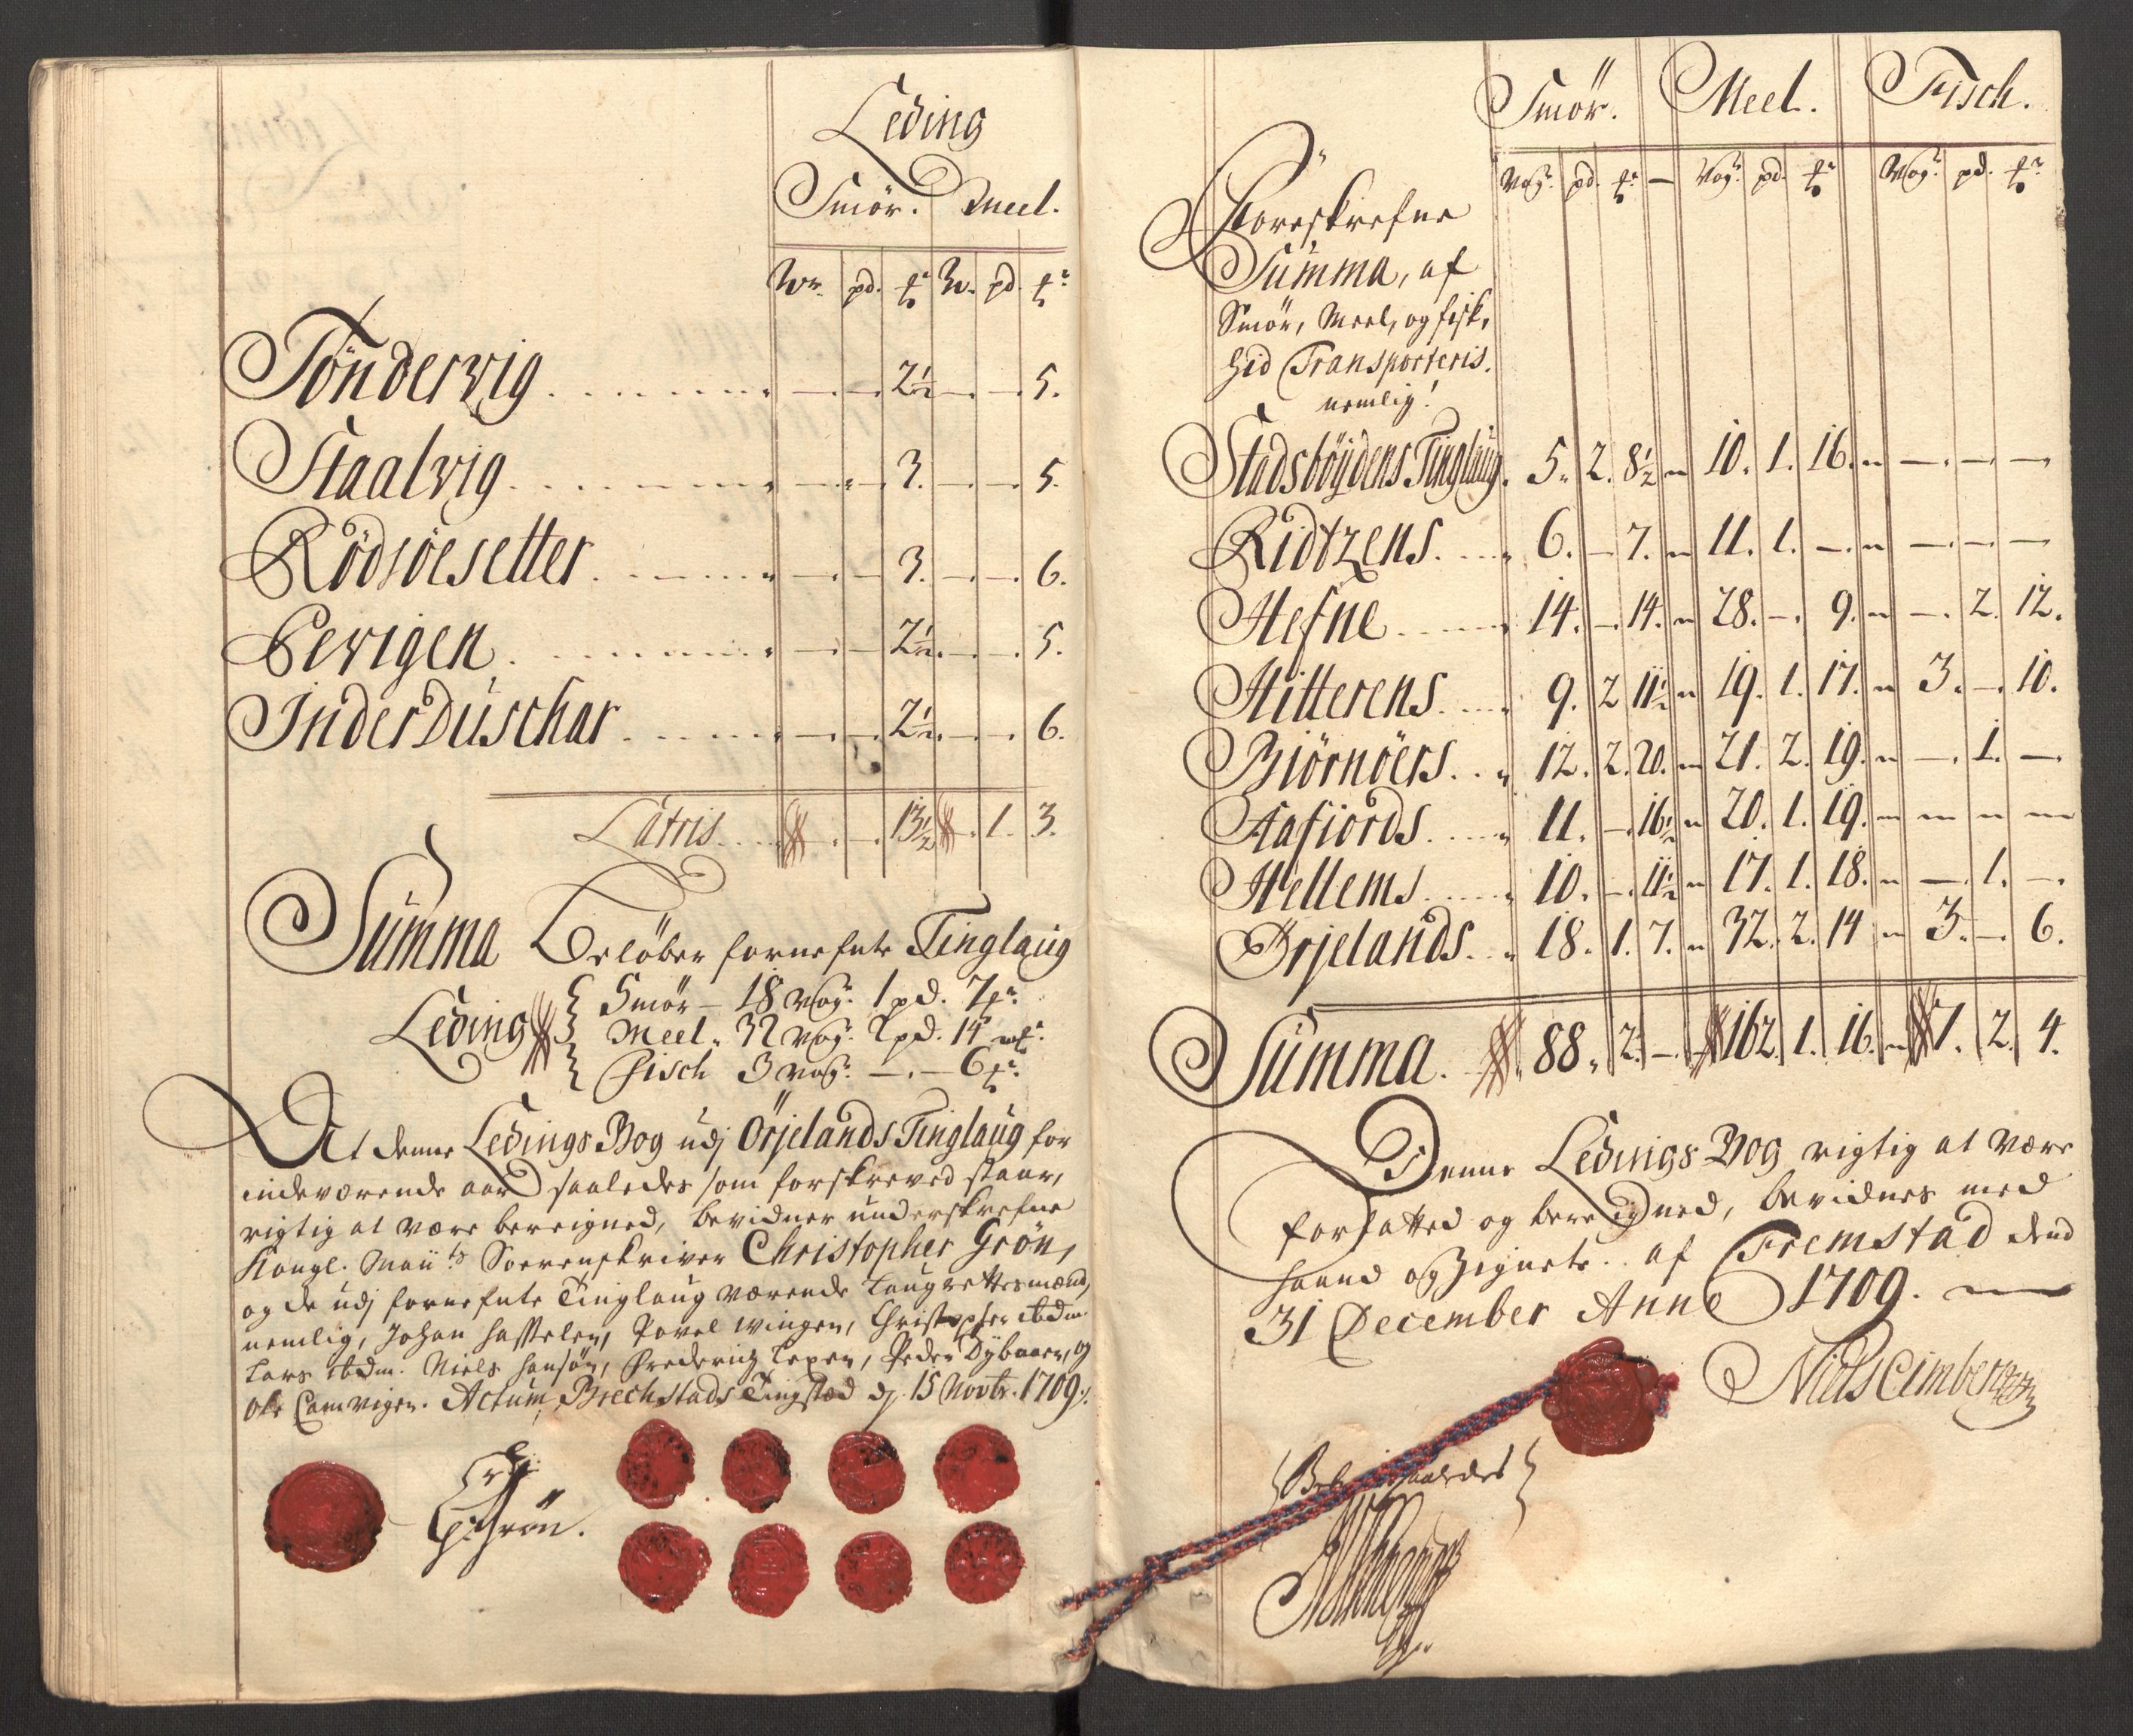 Leding
Smör. Meel.
Wr. pd. ℔r W. pd. ℔r
Töndervig . . . . . — — 2½ — — 5.
Staalvig . . . . . — — 3. — — 5.
Rödsöesetter . . . . . — — 3. — — 6.
Bevigen . . . . . — — 2½. — — 5.
Inderduschar . . . . . — — 2½ — — 6.
Latris . . . — — 13½ — 1. 3.
Summa Belöber fornefnte Tinglaug
Leding { Smör — 18 Wog. 1 pd. 7 ℔r.
Meel. 32 Wog. 2 pd. 14 ℔r.
Fisch 3 Wog. — . — 6 ℔r.
At denne Ledings Bog udj Örjelands Tinglaug for
indeværende aar saaledes som forskreved staar,
rigtig at være bereigned, bevidner underskrefne
Kongl. Maÿts Sorenskriver Christopher Grön,
og de udj fornefnte Tinglaug værende Laugrettesmænd,
nemlig, Johan Hasselen, Povel Wingen, Christopher ibdm
Lars ibdm. Niels Hansön, Frederich Lexen, Peder Dybaaen, og
Ole Camvigen. Actum Brechstads Tingstæd dj. 15 Novbr. 1709.
CGrön.
Smör. Meel. Fisch.
Wog. pd. ℔r — Wog. pd. ℔r Wog. pd. ℔r
Foreskrefne
Summa, af
Smör, Meel, og fisk,
hid Transporteris.
nemlig!
Stadsböÿdens Tinglaug. 5. 2. 8½ „ 10. 1. 16. „ — — —
Ridtzens. . . . 6. — 7. „ 11. 1. — „ — — —
Hefne . . . . 14. — 14. „ 28. — 9. „ — 2. 12.
Hitterens. . . . 9. 2 11½ „ 19. 1. 17. „ 3. — 10.
Biörnöers. . . 12. 2. 20. „ 21. 2. 19. „ — 1. —
Aafiords. . . . 11. — 16½ „ 20. 1. 19. „ „ „ „
Wellems. . . . 10. — 11½ „ 17. 1. 18. „ — 1. —
Örjelands. . . 18. 1. 7. „ 32. 2. 14 „ 3. — 6.
Summa. 88. 2. — 162. 1. 16. „ 7. 2. 4.
Denne Ledings Bog rigtig at være
forfatted og bereigned, bevidnes med
haand og Zignete . . af Fremstad dend
31 December Anno 1709.
Niels Eimberg